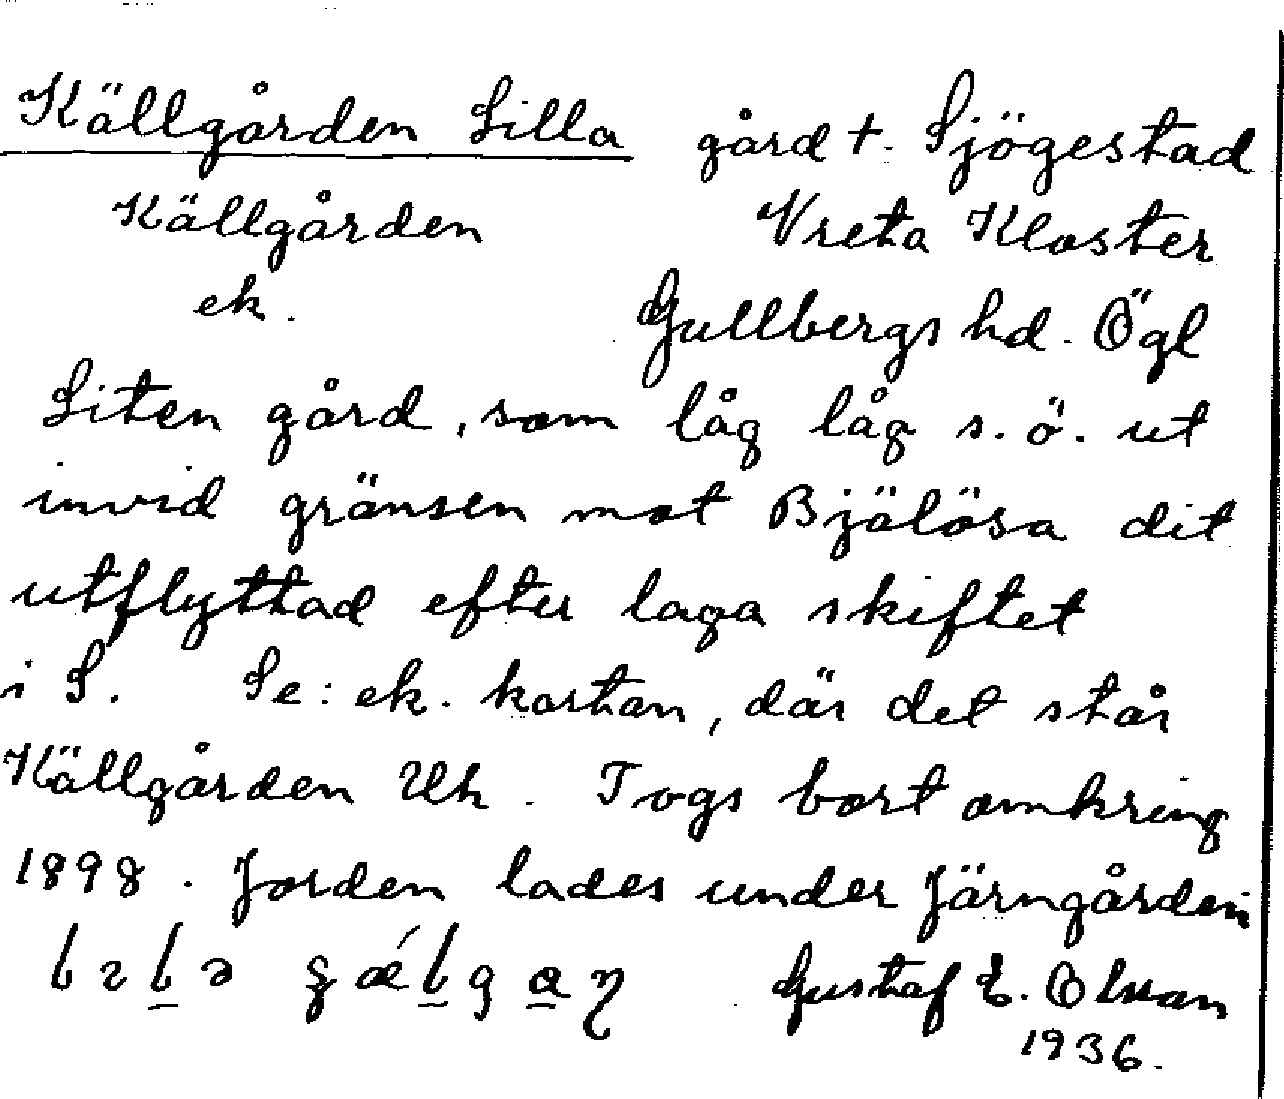 Källgården Lilla gård t. Sjögestad
Källgården Vreta Kloster
ek. Gullbergs hd. Ögl
Liten gård, som låg låg s.ö. ut
invid gränsen mot Bjälösa dit
utflyttad efter laga skiftet
i S. Se: ek. kartan, där det står
Källgården Uh. Togs bort omkring
1898. Jorden lades under Järngården
Gustaf E. Olsson
1936.